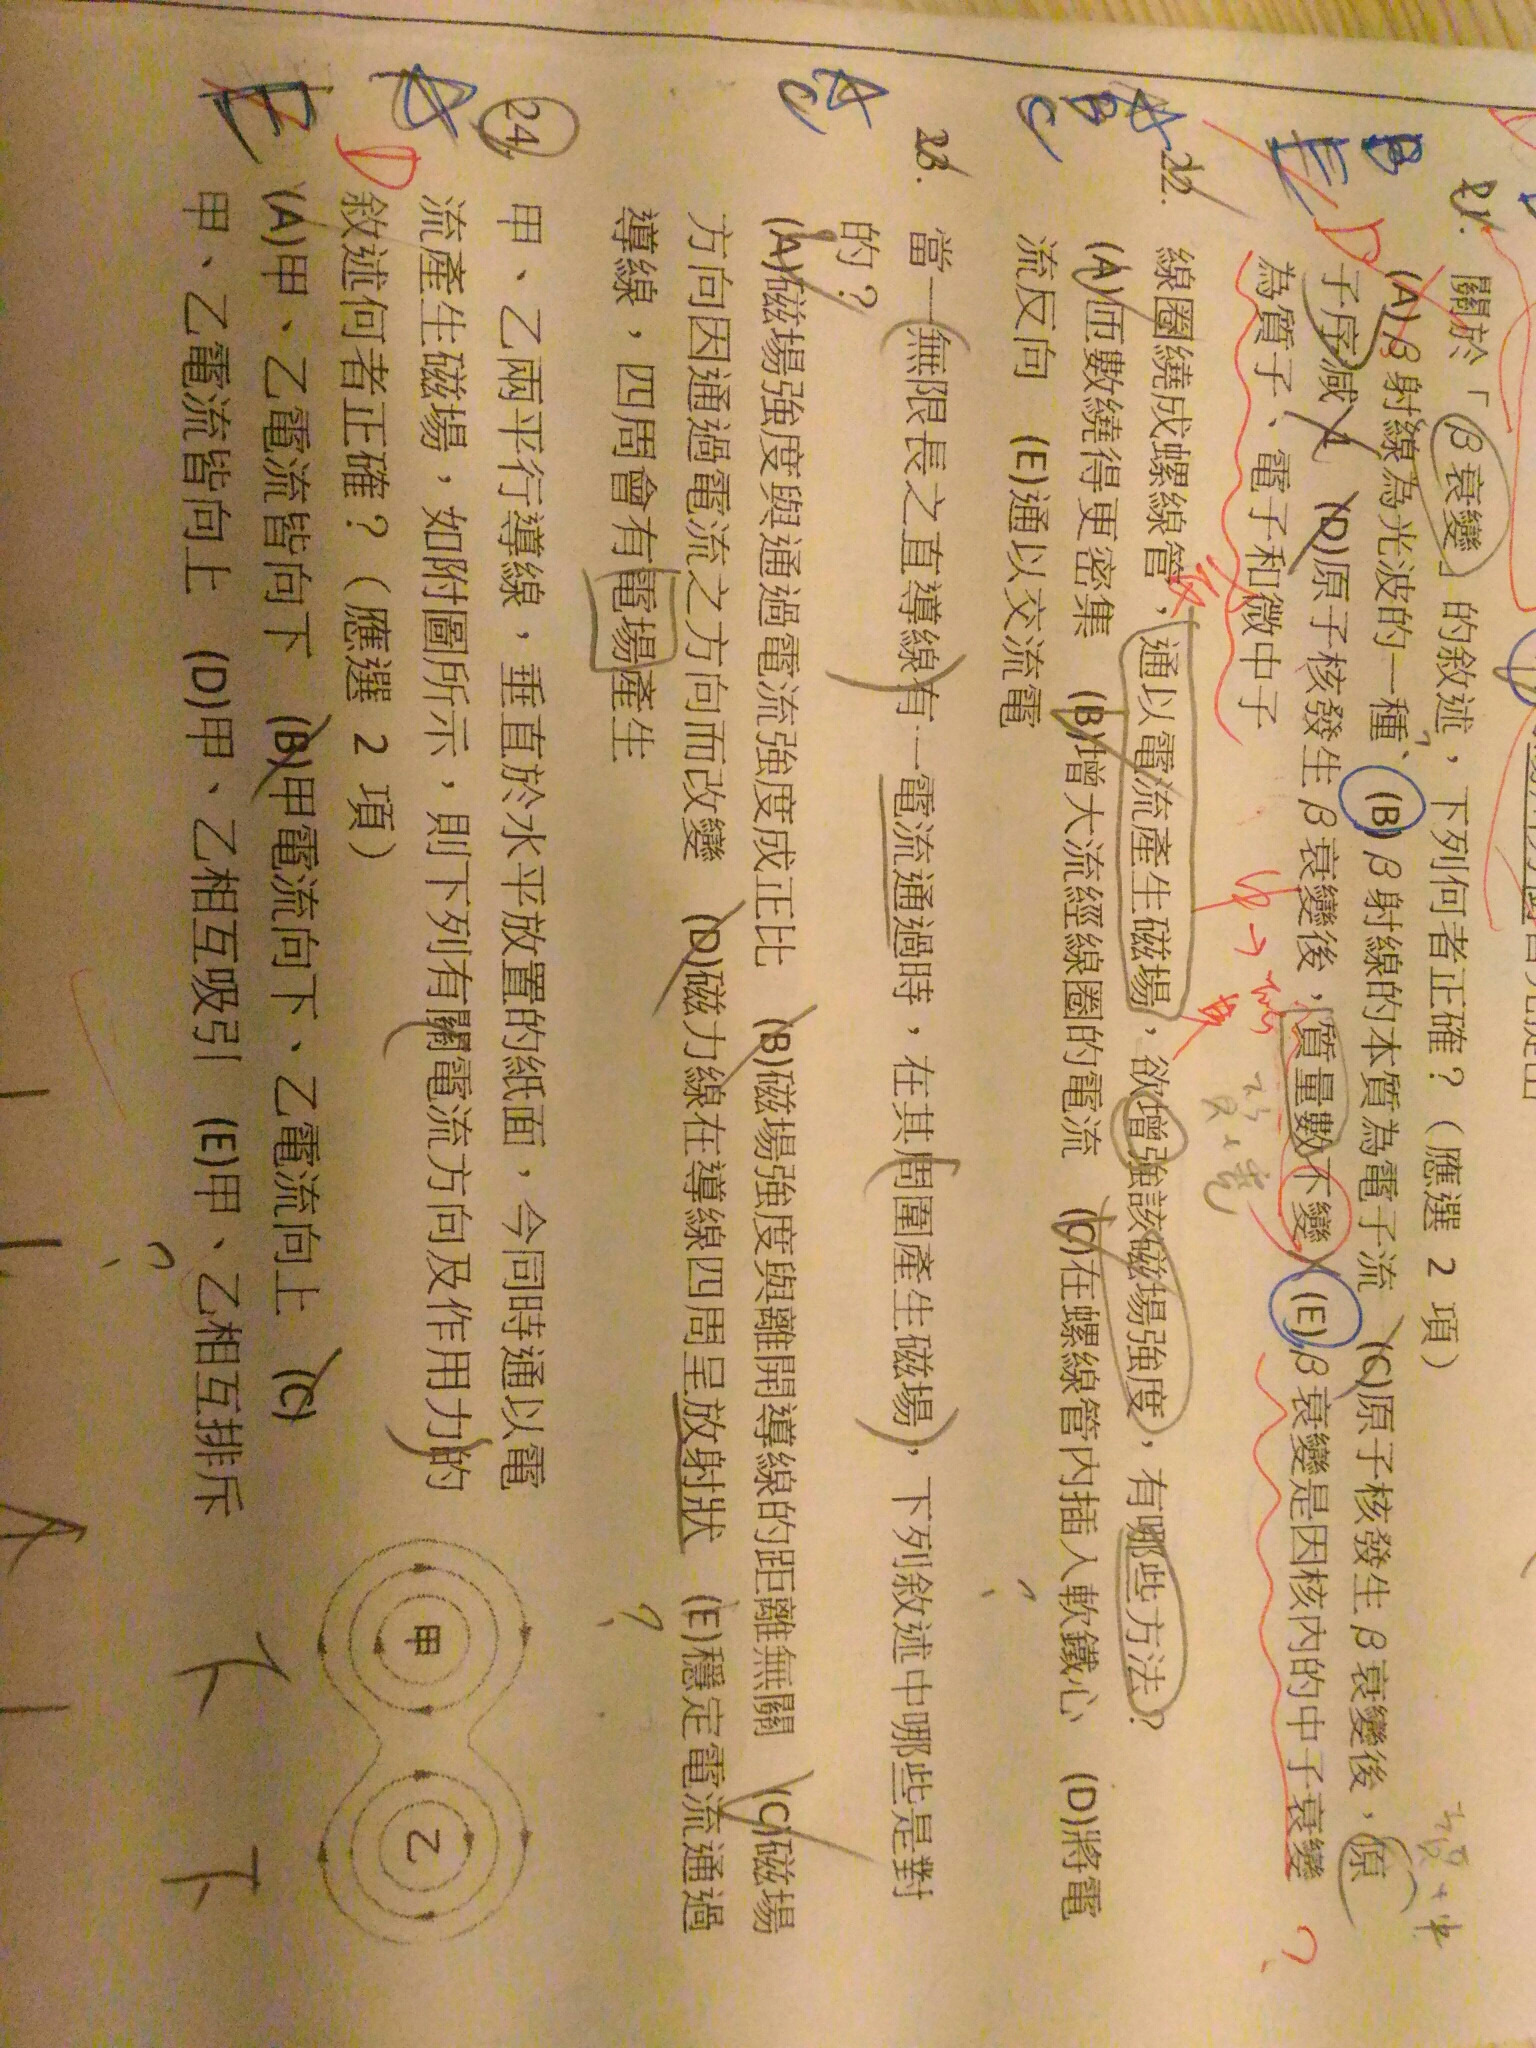 21. 關於「β衰變」的敘述，下列何者正確？（應選 2 項）
(A)β射線為光波的一種、(B)β射線的本質為電子流 (C)原子核發生β衰變後，原
子序減 1 (D)原子核發生β衰變後，質量數不變 (E)β衰變是因核內的中子衰變
為質子、電子和微中子
B
E D
22. 線圈繞成螺線管，通以電流產生磁場，欲增強該磁場強度，有哪些方法？
(A)匝數繞得更密集 (B)增大流經線圈的電流 (C)在螺線管內插入軟鐵心 (D)將電
流反向 (E)通以交流電
A
B
C
23. 當一無限長之直導線有一電流通過時，在其周圍產生磁場，下列敘述中哪些是對
的？
(A)磁場強度與通過電流強度成正比 (B)磁場強度與離開導線的距離無關 (C)磁場
方向因通過電流之方向而改變 (D)磁力線在導線四周呈放射狀 (E)穩定電流通過
導線，四周會有電場產生
A
C
24. 甲、乙兩平行導線，垂直於水平放置的紙面，今同時通以電
流產生磁場，如附圖所示，則下列有關電流方向及作用力的
敘述何者正確？（應選 2 項）
(A)甲、乙電流皆向下 (B)甲電流向下、乙電流向上 (C)
甲、乙電流皆向上 (D)甲、乙相互吸引 (E)甲、乙相互排斥
A D
E
甲
乙